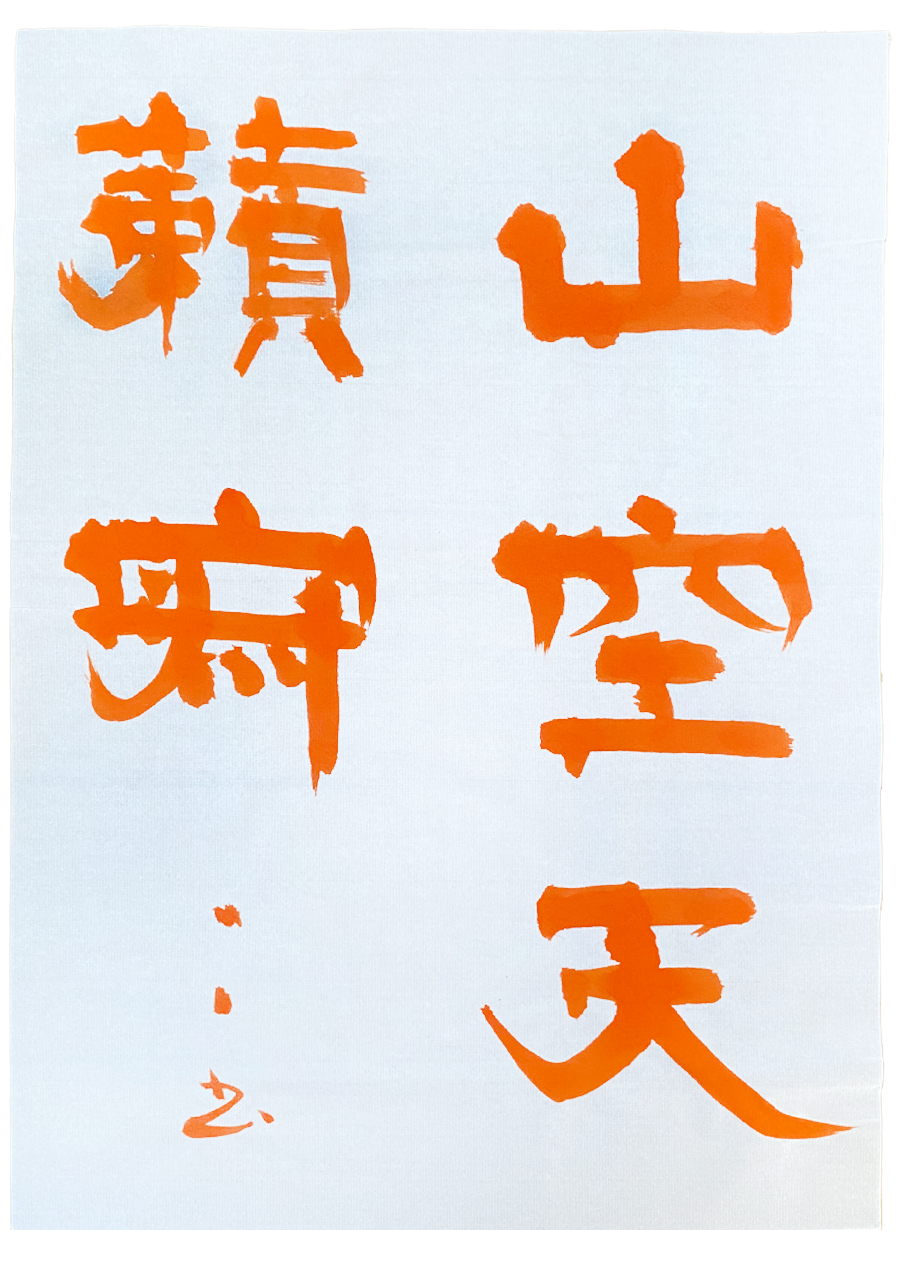 山空天
籟寂
书